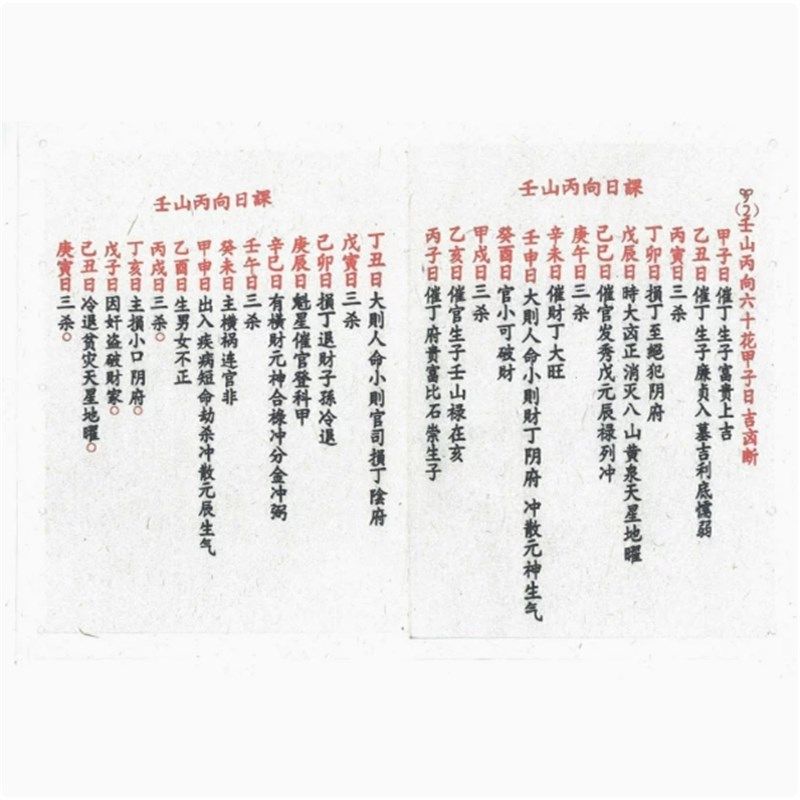 壬山丙向日課
(2)壬山丙向六十花甲子日吉凶断
甲子日催丁生子富貴上吉
乙丑日催丁生子廉贞入墓吉利底懦弱
丙寅日三杀
丁卯日損丁至絕犯阴府
戊辰日時大凶正消灭八山黄泉天星地曜
己巳日催官发秀戊元辰禄列冲
庚午日三杀
辛未日催财丁大旺
壬申日大則人命小則财丁阴府 冲散元神生气
癸酉日官小可破财
甲戌日三杀
乙亥日催官生子壬山禄在亥
丙子日催丁府貴富比石崇生子
壬山丙向日課
丁丑日大則人命小則官司損丁陰府
戊寅日三杀
己卯日損丁退财子孫冷退
庚辰日魁星催官登科甲
辛巳日有橫财元神合祿冲分金冲弼
壬午日三杀
癸未日主橫祸连官非
甲申日出入疾病短命劫杀冲散元辰生气
乙酉日生男女不正
丙戌日三杀。
丁亥日主損小口阴府。
戊子日因奸盗破财家。
己丑日冷退贫灾天星地曜。
庚寅日三杀。